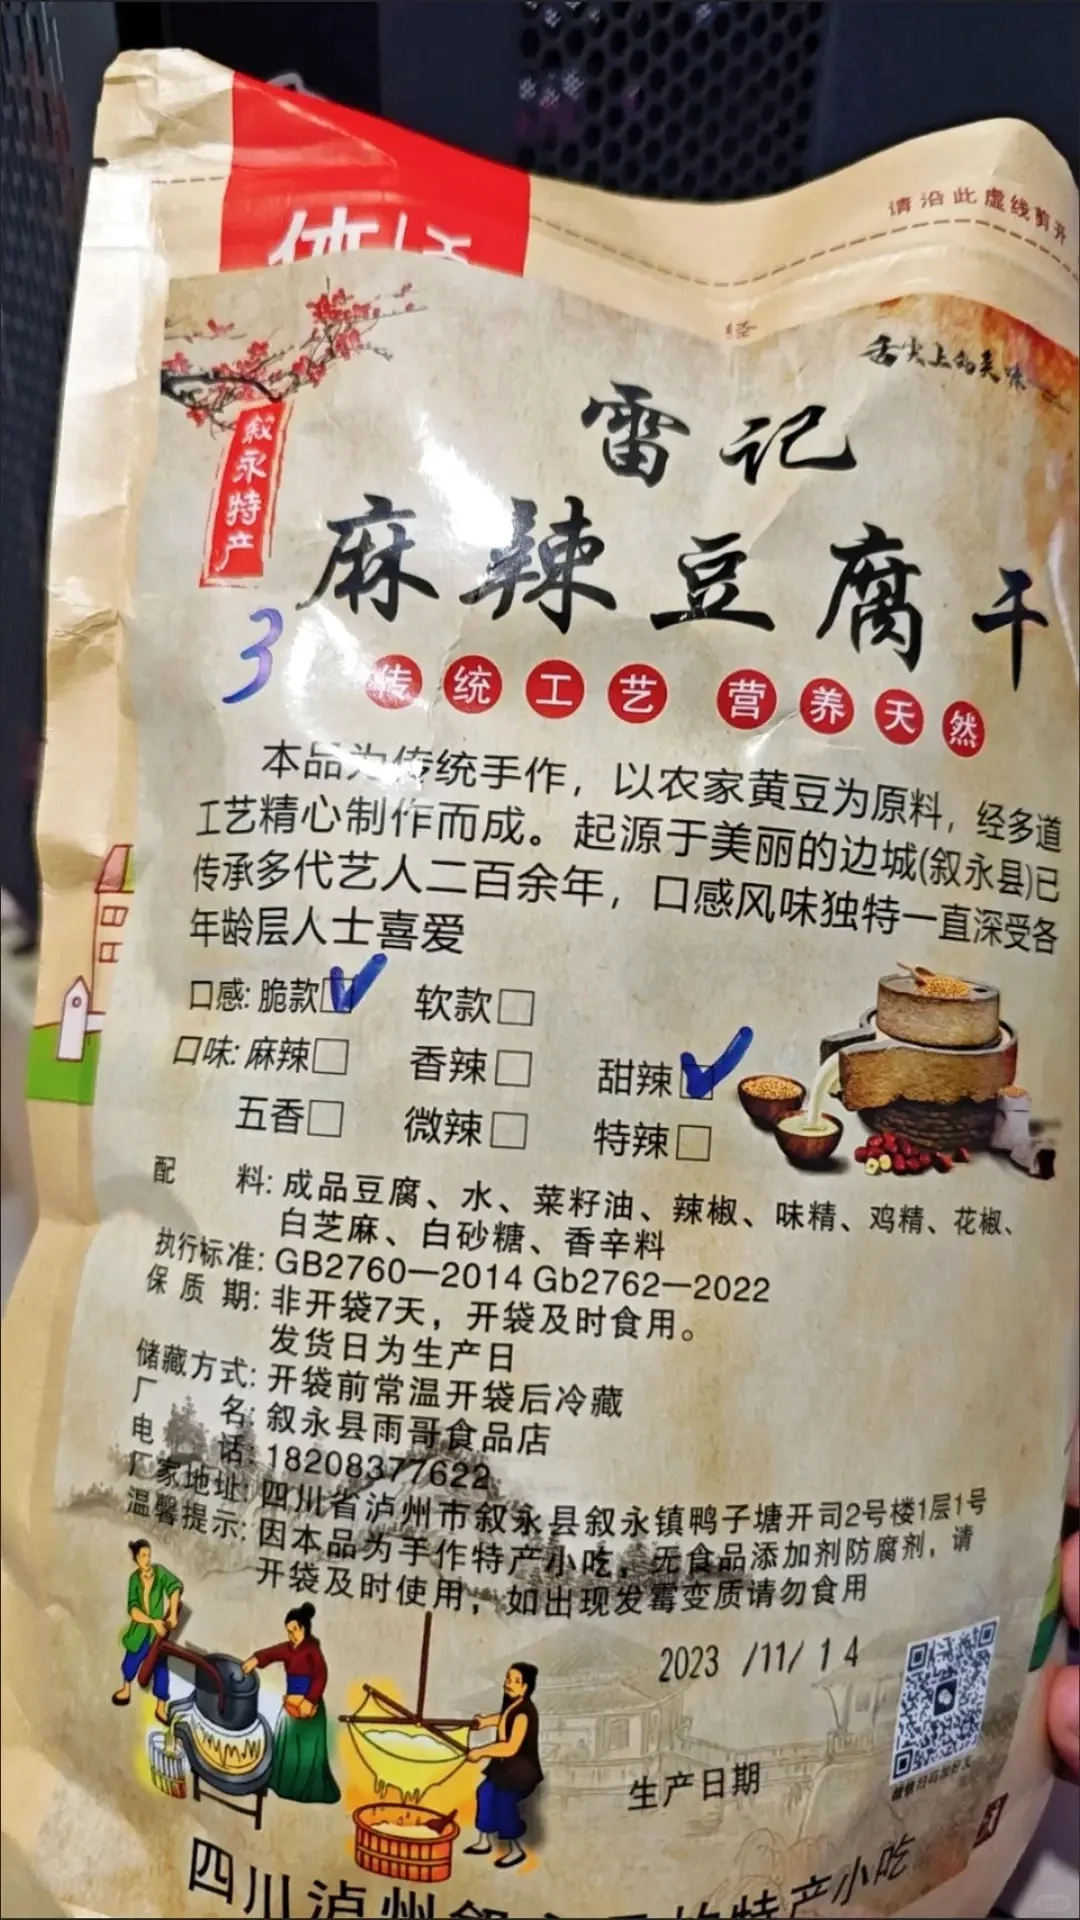 请沿此虚线剪开
舌尖上的美味
叙永特产
雷记
麻辣豆腐干
3
传统工艺 营养天然
本品为传统手作，以农家黄豆为原料，经多道
工艺精心制作而成。起源于美丽的边城(叙永县)已
传承多代艺人二百余年，口感风味独特一直深受各
年龄层人士喜爱
口感:脆款☑ 软款□
口味:麻辣□ 香辣□ 甜辣☑
五香□ 微辣□ 特辣□
配料:成品豆腐、水、菜籽油、辣椒、味精、鸡精、花椒、
白芝麻、白砂糖、香辛料
执行标准:GB2760—2014 Gb2762—2022
保质期:非开袋7天，开袋及时食用。
发货日为生产日
储藏方式:开袋前常温开袋后冷藏
厂名:叙永县雨哥食品店
电话:18208377622
厂家地址:四川省泸州市叙永县叙永镇鸭子塘开司2号楼1层1号
温馨提示:因本品为手作特产小吃，无食品添加剂防腐剂，请
开袋及时使用，如出现发霉变质请勿食用
2023 /11/ 14
生产日期
微信扫码加好友
四川泸州叙永
的特产小吃